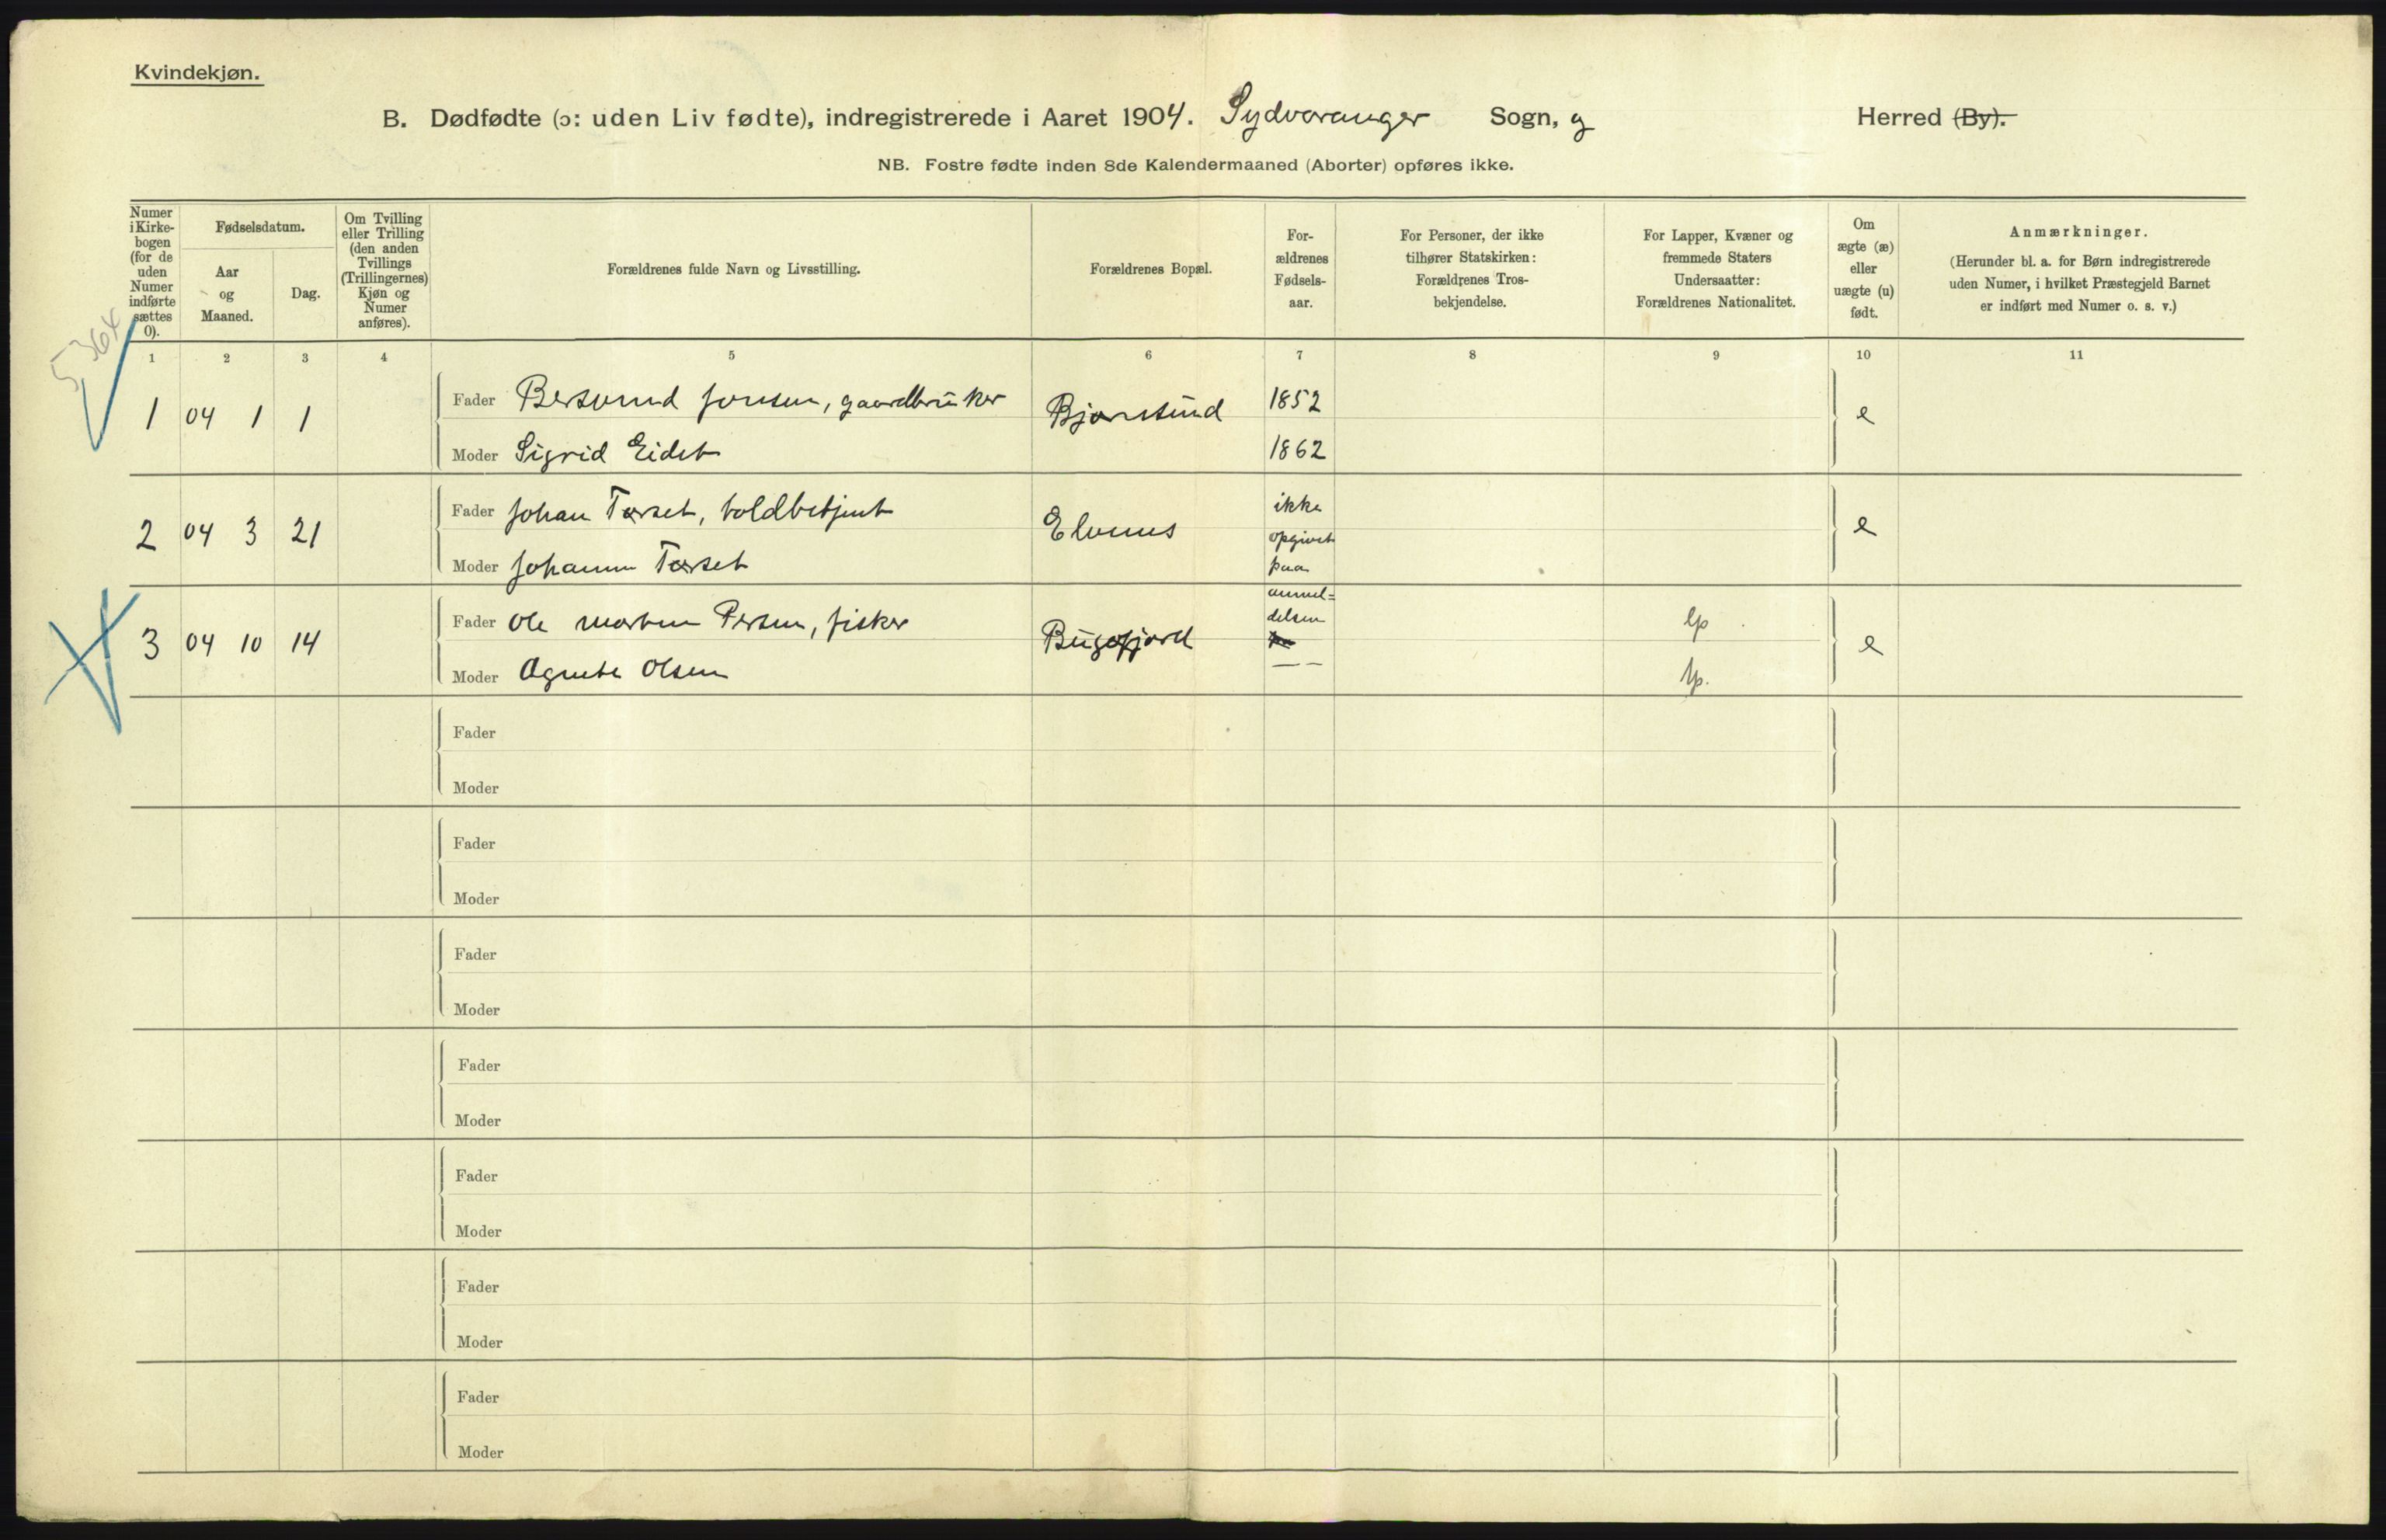 Kvindekjøn.
B. Dødfødte (ɔ: uden Liv fødte), indregistrerede i Aaret 1904. Sydvaranger Sogn, og Herred (By).
NB. Fostre fødte inden 8de Kalendermaaned (Aborter) opføres ikke.
Numer i Kirke-bogen (for de uden Numer indførte sættes 0).
Fødselsdatum.
Aar og Maaned.
Dag.
Om Tvilling eller Trilling (den anden Tvillings (Trillingernes) Kjøn og Numer anføres).
Forældrenes fulde Navn og Livsstilling.
Forældrenes Bopæl.
For-ældrenes Fødsels-aar.
For Personer, der ikke tilhører Statskirken: Forældrenes Tros-bekjendelse.
For Lapper, Kvæner og fremmede Staters Undersaatter: Forældrenes Nationalitet.
Om ægte (æ) eller uægte (u) født.
Anmærkninger.
(Herunder bl. a. for Børn indregistrerede uden Numer, i hvilket Præstegjeld Barnet er indført med Numer o. s. v.)
1 2 3 4 5 6 7 8 9 10 11
5364
1 04 1 1 Fader Bersvend Jonsen, gaardbruker Bjørnsund 1852 e
Moder Sigrid Eidet 1862
2 04 3 21 Fader Johan Tørset, toldbetjent Elvenes ikke opgivet paa anmel-delsen e
Moder Johanne Tørset
3 04 10 14 Fader Ole Morten Persen, fisker Bugøfjord lp e
Moder Agnete Olsen — — lp.
Fader
Moder
Fader
Moder
Fader
Moder
Fader
Moder
Fader
Moder
Fader
Moder
Fader
Moder